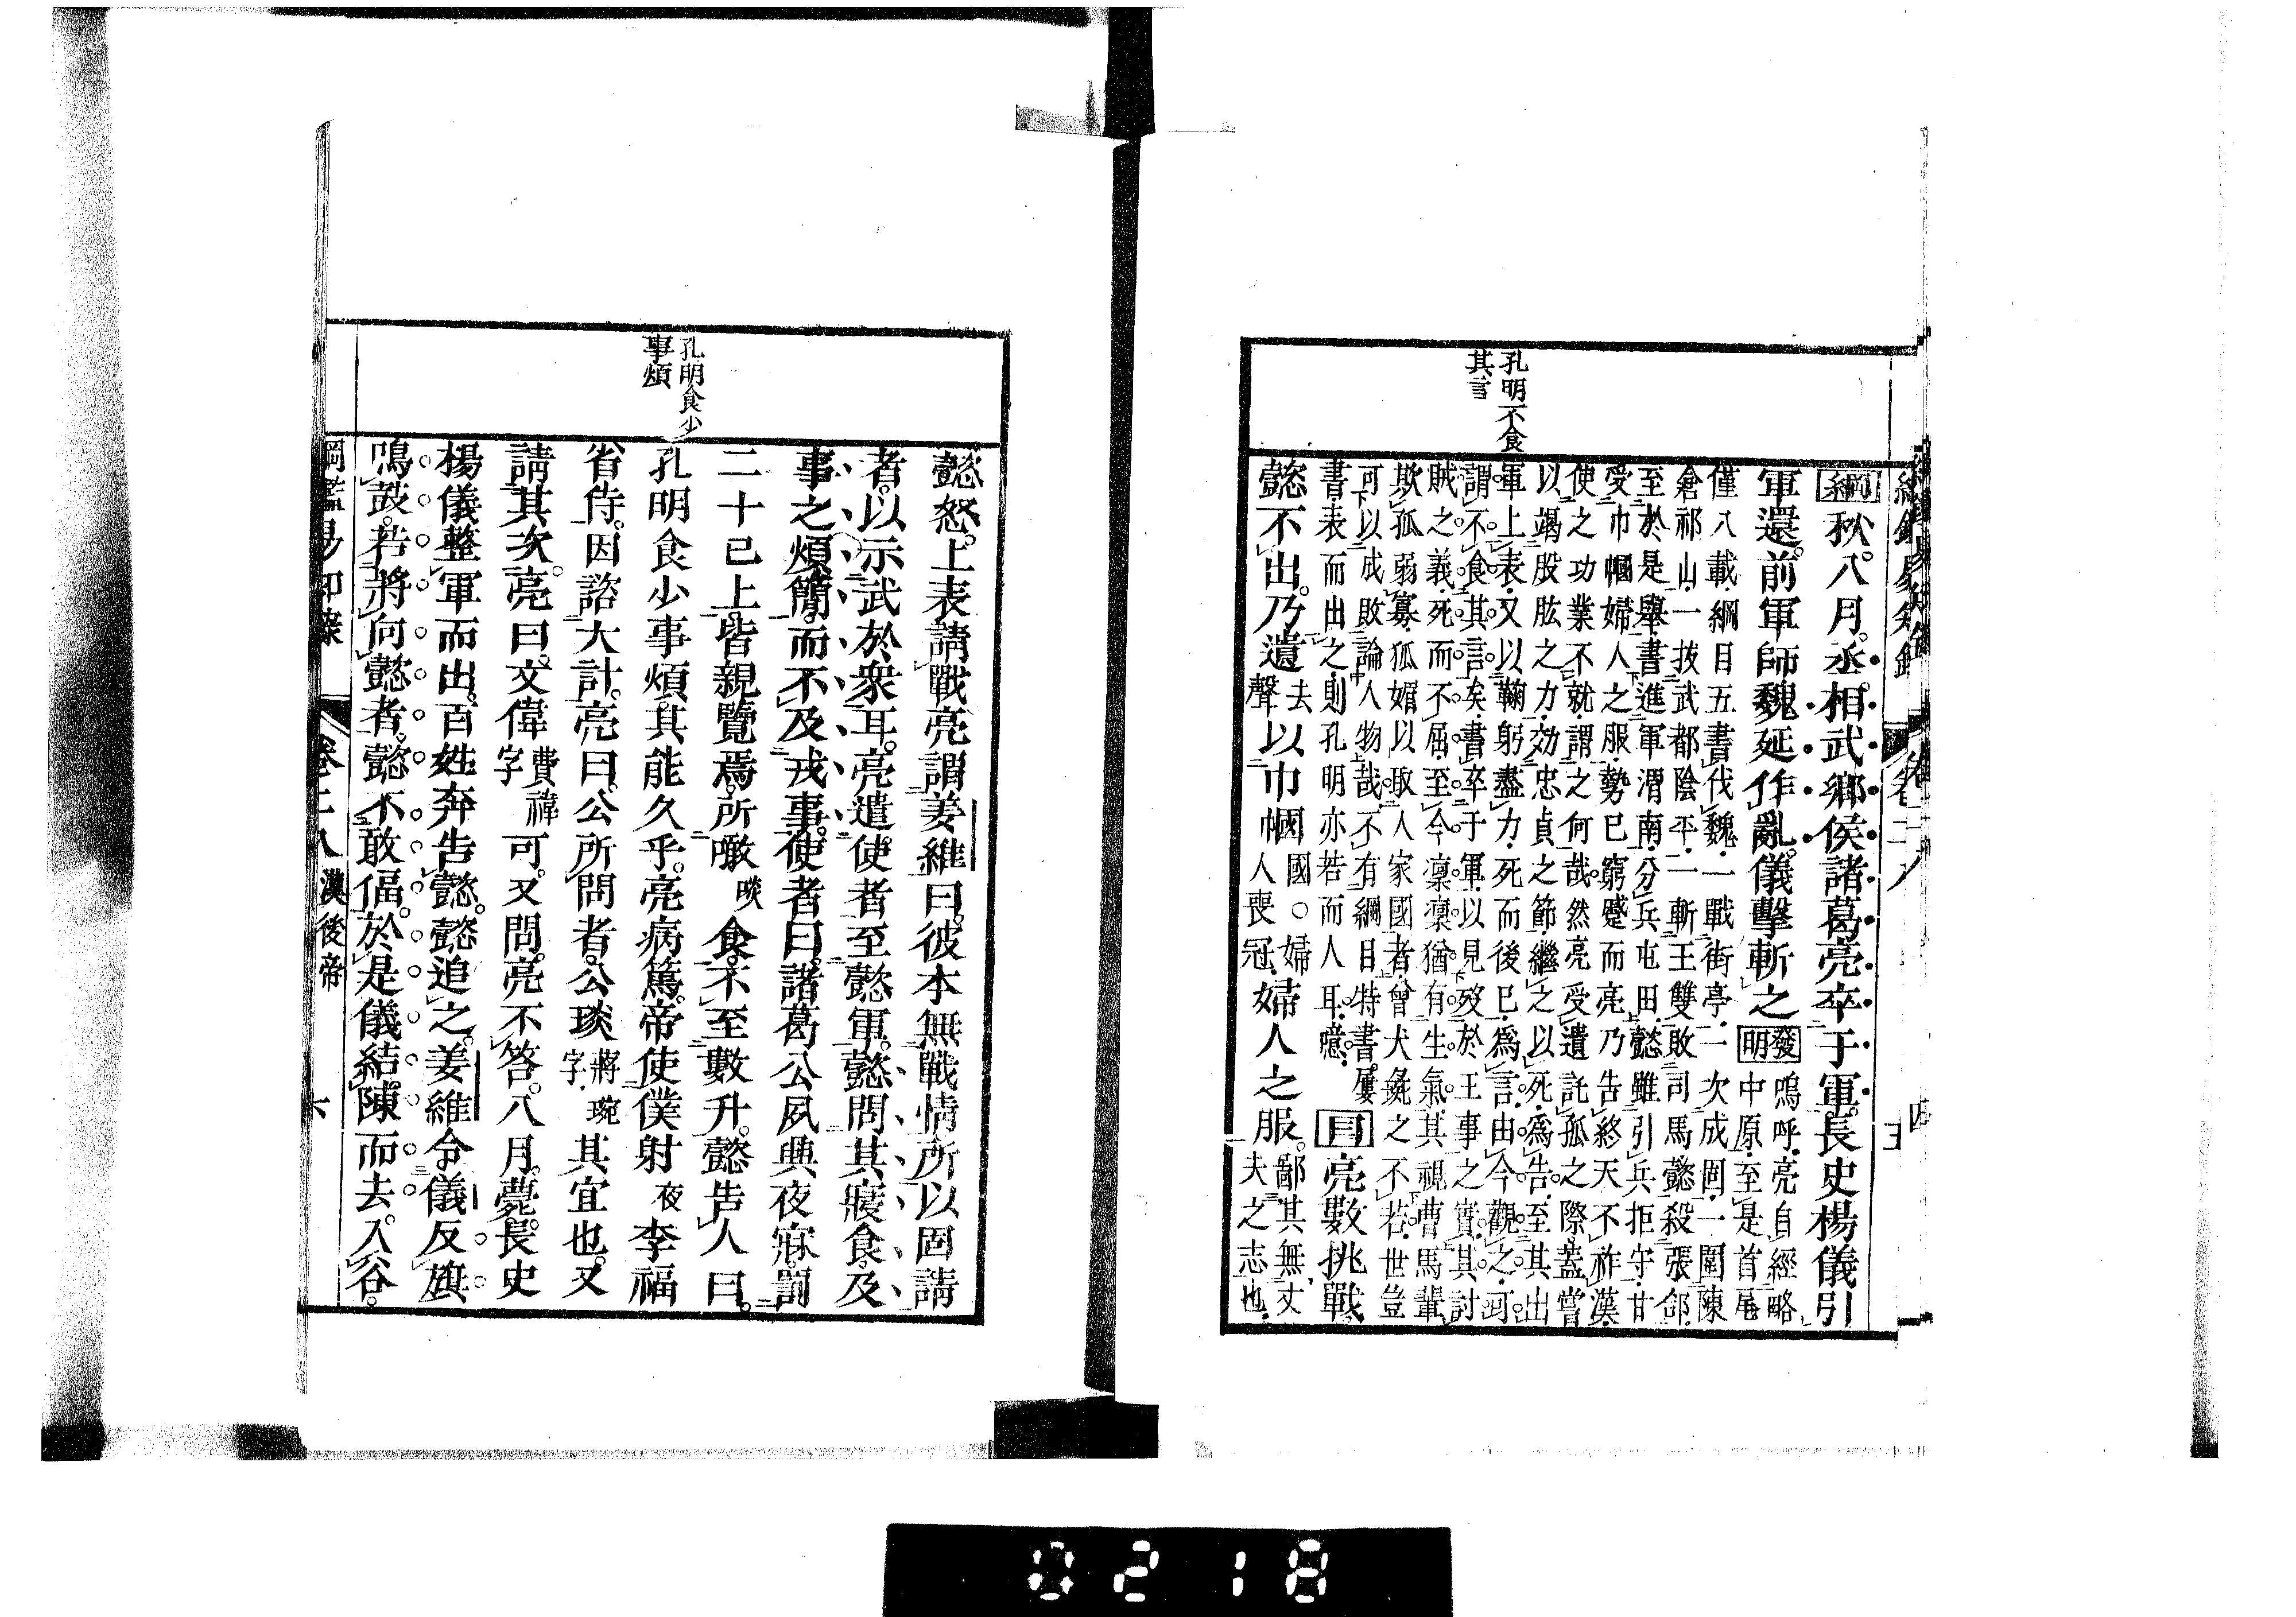 孔明不食
其言
綱秋八月。丞相武鄉侯諸葛亮卒于軍。長史楊儀引
軍還。前軍師魏延作亂。儀擊斬之發明嗚呼亮自經略
中原至是首尾
僅八載綱目五書伐魏一戰街亭二次成固一圍陳
倉祁山一拔武都陰平二斬王雙敗司馬懿殺張郃
至於是舉書進軍渭南分兵屯田懿雖引兵拒守甘
受巾幗婦人之服勢已窮蹙而亮乃告終天不祚漢
使之功業不就謂之何哉然亮受遺託孤之際蓋嘗
以竭股肱之力効忠貞之節繼之以死為告至其出
軍上表又以鞠躬盡力死而後已為言由今觀之可
謂不食其言矣書卒于軍以見歿於王事之實其討
賊之義死而不屈至今凜凜猶有生氣其視曹馬輩
欺孤弱寡狐媚以取人家國者曾犬彘之不若世豈
可以成敗論人物哉不有綱目特書屢
書表而出之則孔明亦若而人耳噫目亮數挑戰
懿不出。乃遺去聲以巾幗國○婦人喪冠婦人之服。鄙其無丈夫之志也
孔明食少
事煩
懿怒。上表請戰亮謂姜維曰。彼本無戰情所以固請
者。以示武於衆耳。亮遣使者至懿軍。懿問其寢食。及
事之煩簡。而不及戎事。使者曰。諸葛公夙興夜寐。罰
二十已上。皆親覽焉。所噉啖食。不至數升。懿告人曰。
孔明食少事煩。其能久乎。亮病篤。帝使僕射夜李福
省侍。因諮大計。亮曰。公所問者。公琰蔣琬字其宜也。又
請其次。亮曰。文偉費禕字可。又問。亮不答。八月。薨。長史
楊儀整軍而出。百姓奔告懿。懿追之。姜維令儀反旗
鳴鼓。若將向懿者。懿不敢偪。於是儀結陳而去。入谷。
綱鑑易知錄 卷二八 漢後帝 六